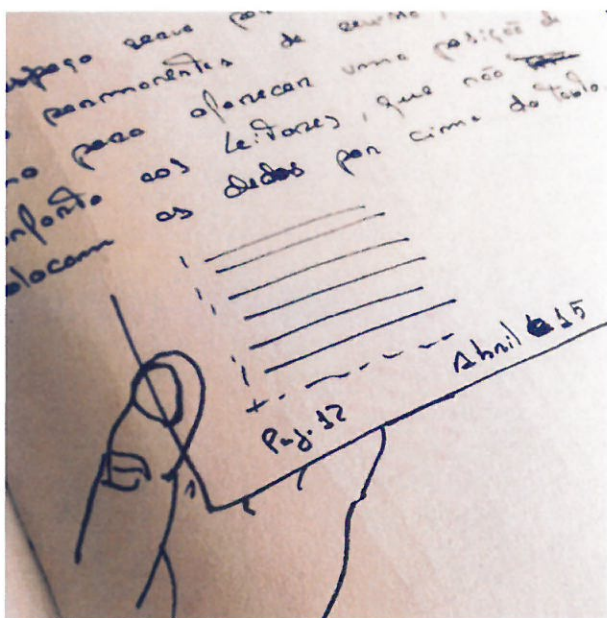 espaço serve par
permanentes de ensino,
no para oferecer uma posição de
onforto aos leitores, que não
olocam os dedos por cima do texto.
Pag. 12
Abril 15